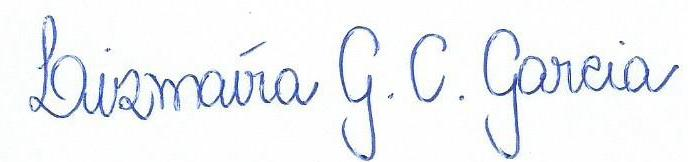 Luizmaíra G. C. Garcia